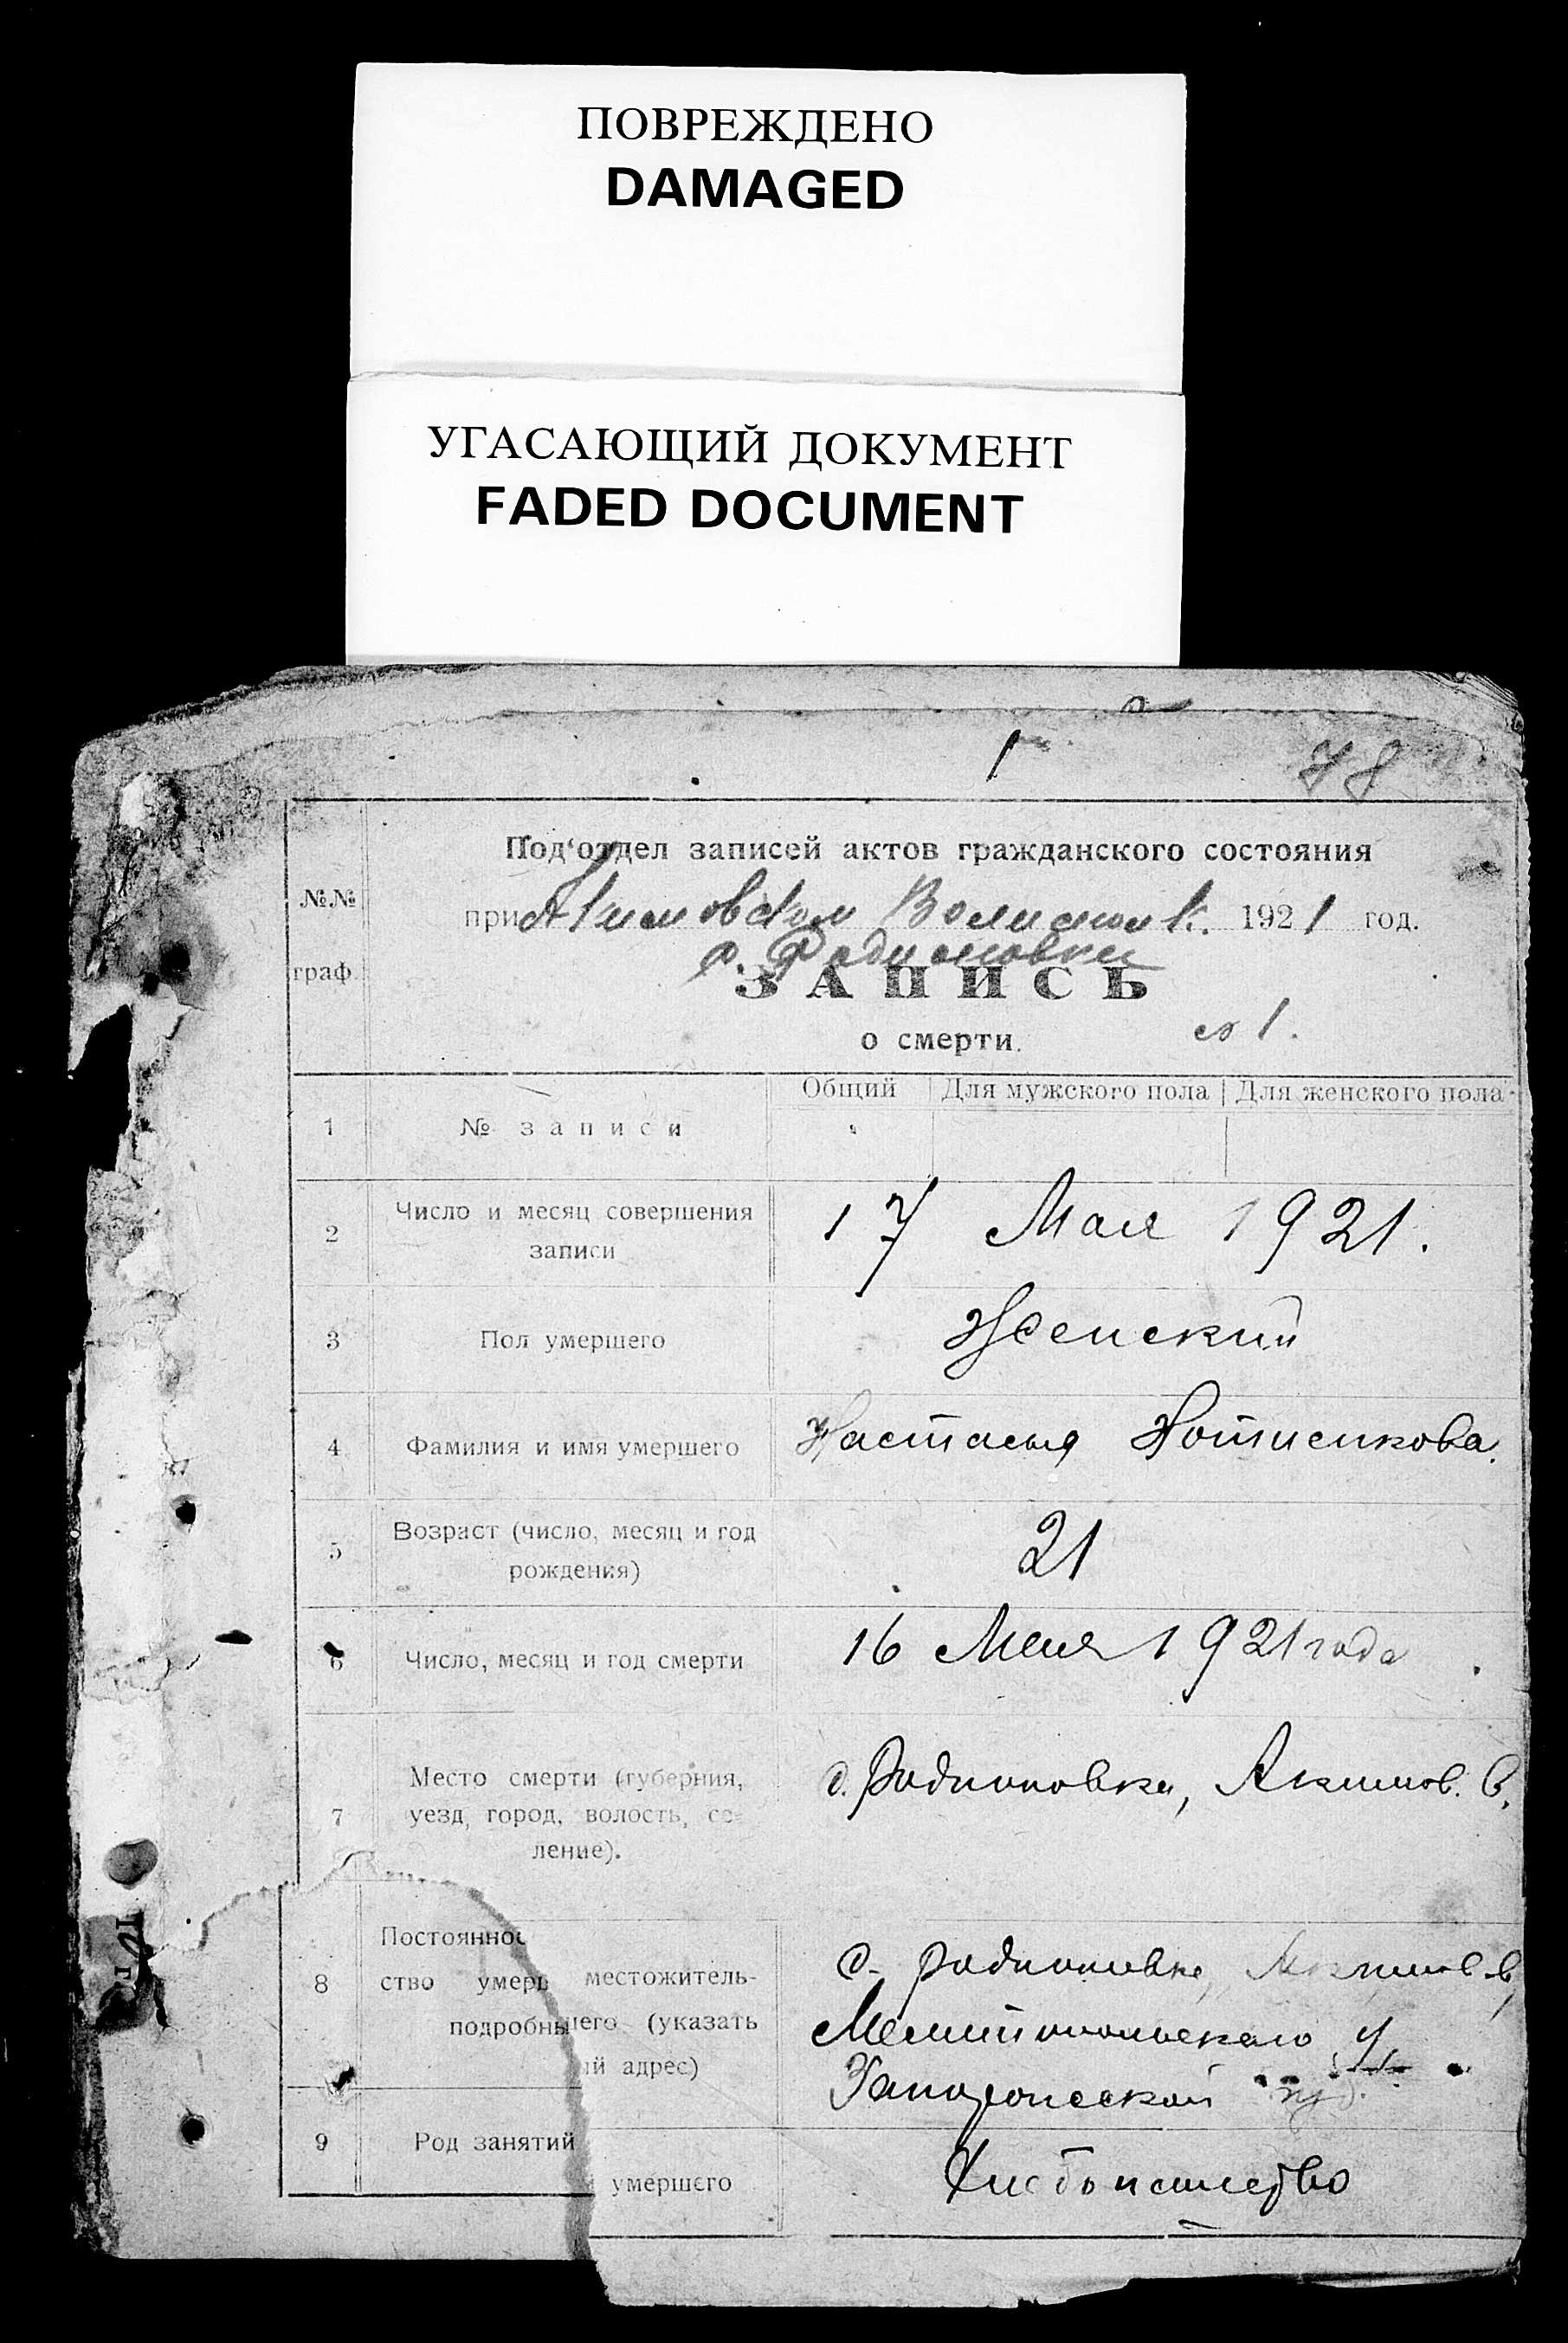 ПОВРЕЖДЕНО
DAMAGED
УГАСАЮЩИЙ ДОКУМЕНТ
FADED DOCUMENT
1
78
№№
граф.
Под'отдел записей актов гражданского состояния
при Акимовском Волисполк. 1921 год.
с. Родионовки
ЗАПИСЬ
о смерти.
№ 1.
Общий Для мужского пола Для женского пола
1 № записи
2 Число и месяц совершения записи
17 Мая 1921.
3 Пол умершего
Женский
4 Фамилия и имя умершего
Настасья Нотисикова.
5 Возраст (число, месяц и год
рождения)
21
6 Число, месяц и год смерти
16 Мая 1921 года
7 Место смерти (губерния,
уезд, город, волость, се-
ление).
с. Родионовка, Акимов. в.
8 Постоянное
ство умерш местожитель-
подробны шего (указать
ый адрес)
с. Родионовка, Акимов. в,
Мелитопольского у.
Запорожской губ.
9 Род занятий
умершего
Хлебопашество